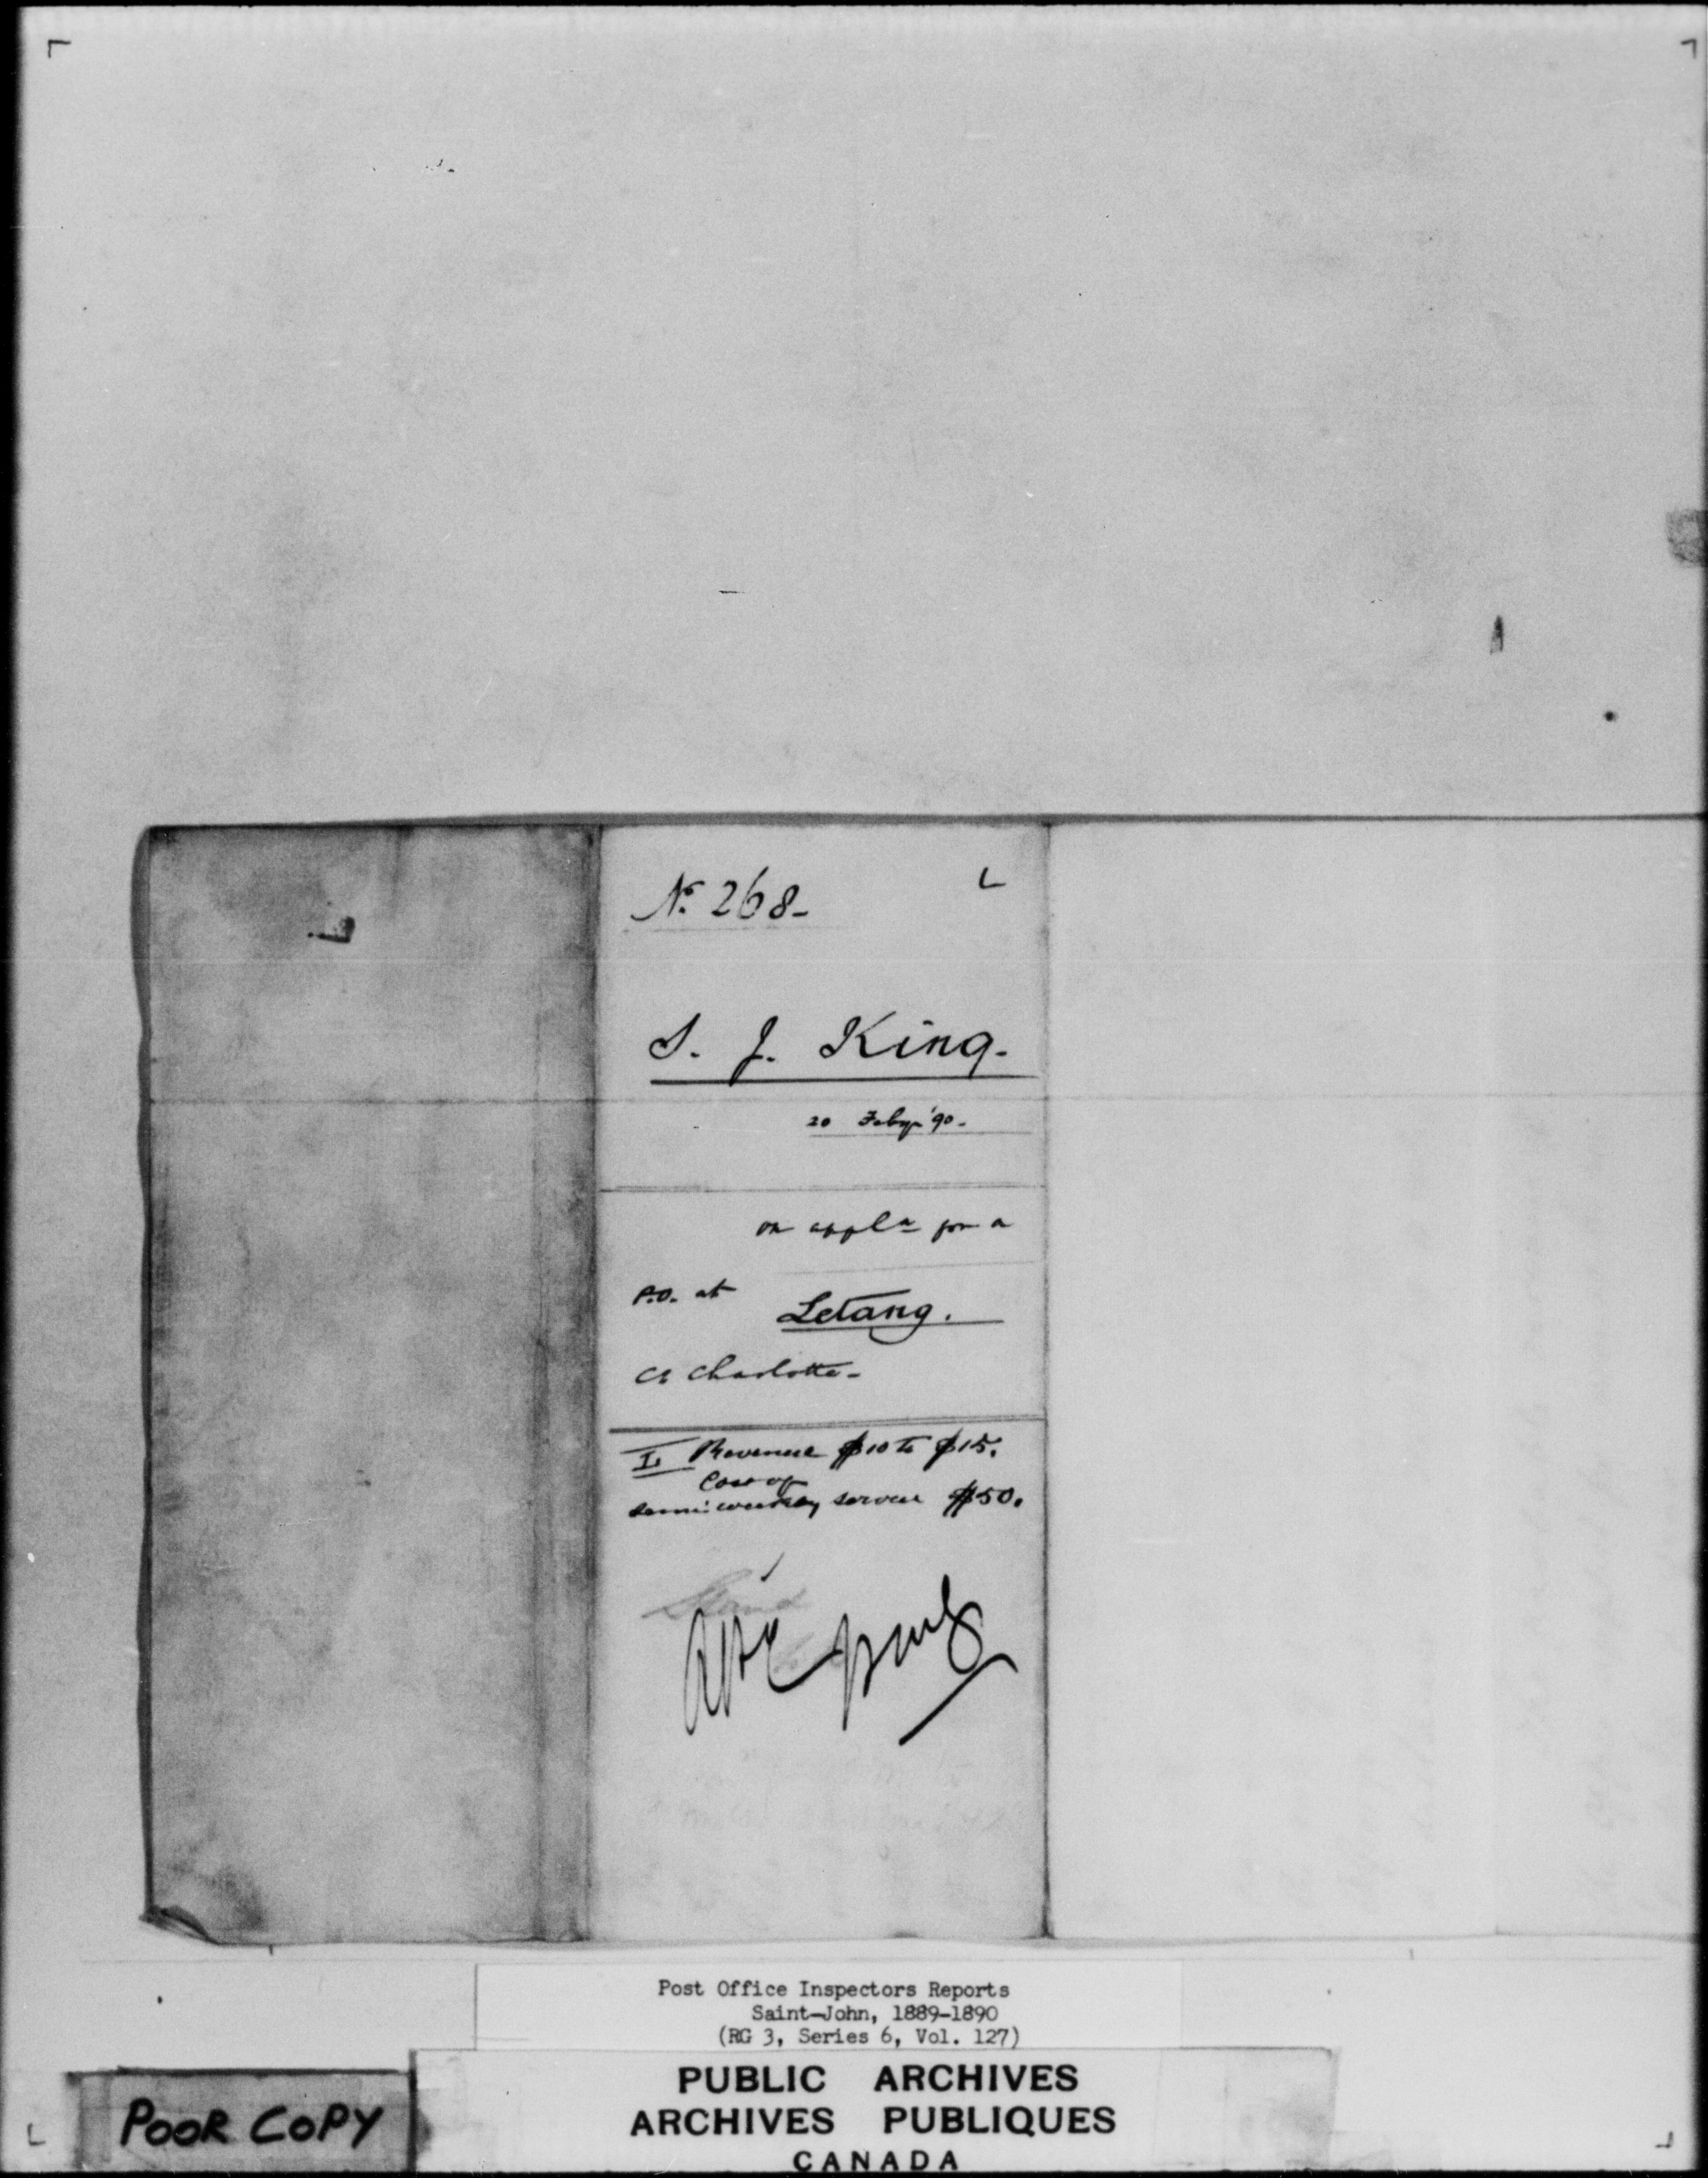 No. 268-
S. J. King.
20 Feby '90-
on appln for a
P.O. at
Letang.
Co Charlotte-
Revenue $10 to $15.
Cost of
semi-weekly service $50.
Post Office Inspectors Reports
Saint-John, 1889-1890
(RG 3, Series 6, Vol. 127)
PUBLIC ARCHIVES
ARCHIVES PUBLIQUES
CANADA
POOR COPY